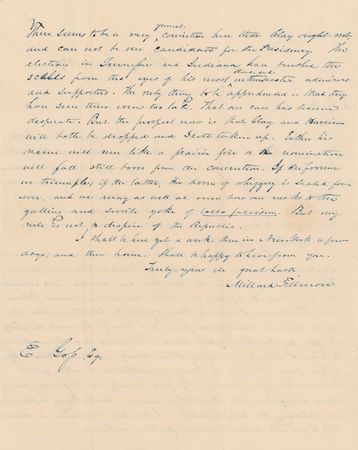 There seems to be a very general conviction here that Clay ought not
and can not be our candidate for the Presidency. The
elections in Tennessee and Indiana have brushed the
scales from the eyes of his most blind and enthusiastic admirers
and supporters. The only thing to be apprehended is that they
have seen their error too late. That our case has become
desperate. But the prospect now is that Clay and Harrison
will both be dropped and Scott taken up. Either his
name will run like a prairie fire or the nomination
will fall still born from the convention. If the former
we triumph; if the latter, the doom of whiggery is sealed for
ever, and we may as well at once bow our necks to the
galling and servile yoke of loco focoism. But my
rule is not to despair of the Republic.
I shall be here yet a week, then in New York a few
days, and then home. Shall be happy to hear from you.
Truly yours in great haste
Millard Fillmore
E. Goss Esq.